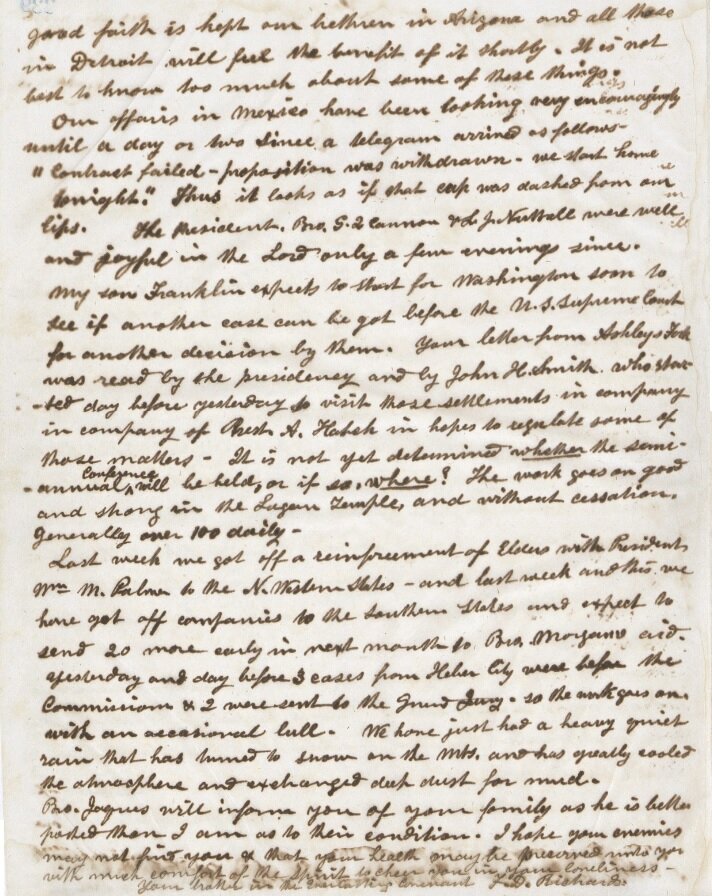 good faith is kept our bethren in Arizona and all those
in Detroit will feel the benefit of it shortly. It is not
best to know too much about some of these things.
Our affairs in Mexico have been looking very encouragingly
until a day or two since a telegram arrived as follows-
"Contract failed - proposition was withdrawn - we start home
tonight." Thus it looks as if that cup was dashed from our
lips. The President, Bro. G. Q Cannon & L. J. Nuttall were well
and joyful in the Lord only a few evenings since.
My son Franklin expects to start for Washington soon to
see if another case can be got before the U.S. Supreme Court
for another decision by them. Your letter from Ashleys Fork
was read by the presidency and by John H. Smith. who start
-ted day before yesterday to visit those settlements in company
in company of Prest A. Hatch in hopes to regulate some of
those matters - It is not yet determined whether the semi-
-annual Conference will be held, or if so, where? The work goes on good
and strong in the Logan Temple, and without cessation,
Generally over 100 daily -
Last week we got off a reinforcement of Elders with President
Wm M. Palmer to the N. Western States - and last week and this we
have got off companies to the Southern States and expect to
send 20 more early in next month to Bro. Morgans aid.
Yesterday and day before 3 cases from Heber City were before the
Commissioner & 2 were sent to the Grand Jury. so the work goes on.
with an occasional lull. We have just had a heavy quiet
rain that has turned to snow on the Mts. and has greatly cooled
the atmosphere and exchanged deep dust for mud.
Bro. Jaques will inform you of your family as he is better
posted than I am as to their condition. I hope your enemies
may not find you & that your health may be preserved unto you
with much comfort of the Spirit to cheer you in your loneliness -
Your brother in the Covenant F. D. Richards